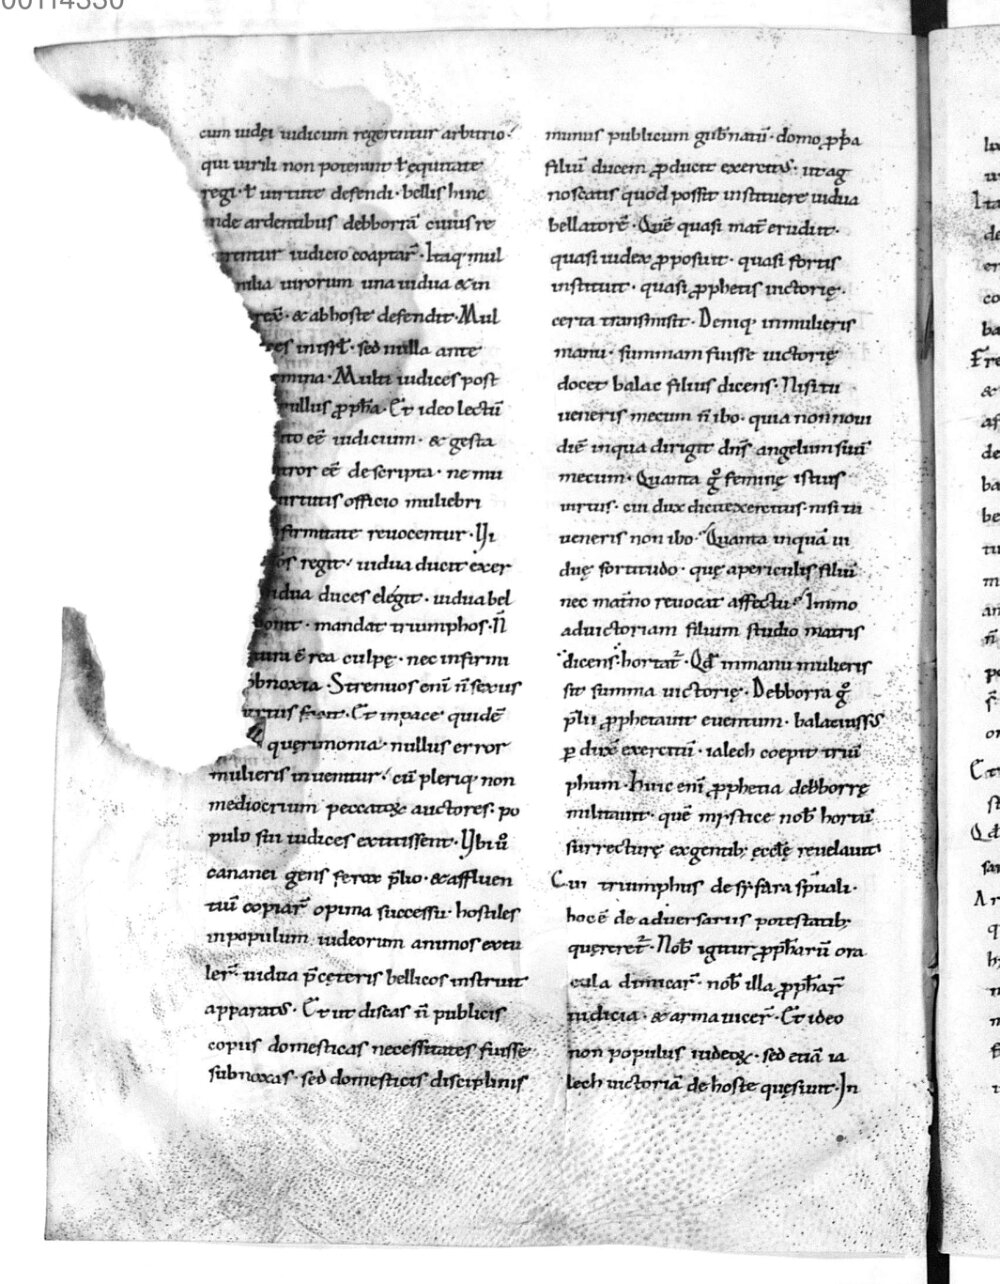 00114330
cum iudęi iudicum regerentur arbitrio·
qui uirili non poterant ł equitate
regi· ł uirtute defendi· bellis hinc
nde ardentibus debborrā cuius re
rentur iudicio coaptar̄· Itaq; mul
milia uirorum una uidua & in
cē· & ab hoste defendit· Mul
es in isrł· sed nulla ante
mina· Multi iudices post
nullus ꝓph̄a· Et ideo lectū
to eē iudicium· & gesta
tror eē descripta· ne mu
uirtutis officio muliebri
firmitate reuocentur· Vi
os regit· uidua ducit exer
idua duces elegit· uidua bel
onit· mandat triumphos· N̄
tura ē rea culpę· nec infirmi
obnoxia· Strenuos eni n̄ sexus
uirtus facit· Et in pace quidē
quęrimonia· nullus error
mulieris inuenitur· cū pleriq; non
mediocrium peccatoꝝ auctores· po
pulo sui iudices extitissent· Vbi ů
cananei gens ferox p̄lio· & affluen
tiū copiar̄ opima successu· hostiles
in populum iudeorum animos extu
ler̄· uidua p̄ cęteris bellicos instruit
apparatus· Et ut discas n̄ publicis
copiis domesticas necessitates fuisse
subnoxas· sed domesticis disciplinis
munus publicum gub̄natū· domo ꝓpha
filiū ducem ꝓducit exercitus· ut ag
noscatis quod possit instituere uidua
bellatorē· Quē quasi mat̄ erudit·
quasi iudex ꝓposuit· quasi fortis
instituit· quasi ꝓphetis uictorię·
certa transmisit· Deniq; in mulieris
manu· summam fuisse uictorię
docet balac filius dicens· Nisi tu
ueneris mecum n̄ ibo· quia non noui
diē in qua dirigit dn̄s angelum suū
mecum· Quanta g° feminę istius
uirtus· cui dux dicit exercitus· nisi tu
ueneris non ibo· Quanta inquā ui
duę fortitudo· quę a periculis filiū
nec mat̄no reuocat affectu· Immo
ad uictoriam filium studio matris
dicens hortat̄· Qd̄ in manu mulieris
sit summa uictorię· Debborra g°
p̄lii ꝓphetauit euentum· balac iussus
ꝑ duxē exercitū· ialech coepit triū
phum· Huic enī ꝓphetia debborrę
militauit· quē mystice nob̄ hortū
surrecturę ex gentib; eccłę reuelauit
Cui triumphus de sysara spiuali·
hoc ē de aduersariis potestatib;
quęreret̄· Nob̄ igitur ꝓph̄arū ora
cula dimicar̄· nob̄ illa ꝓph̄ar̄
iudicia· & arma uicer̄· Et ideo
non populus iudeoꝝ· sed etiā ia
lech uictoriā de hoste quęsiuit· In